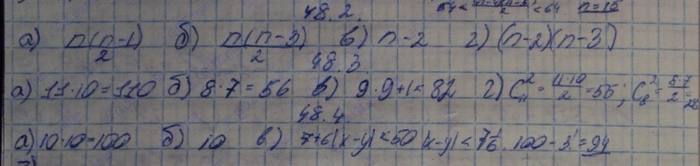 48.2.
а) n(n-1)/2 б) n(n-3)/2 в) n-2 г) (n-2)(n-3)
48.3
а) 11·10=110 б) 8·7=56 в) 9·9+1=82 г) C²₁₁ = 11·10/2 = 55; C²₈ =
48.4
а) 10·10=100 б) 10 в) 7+6(x-y)<50 100-3!=94